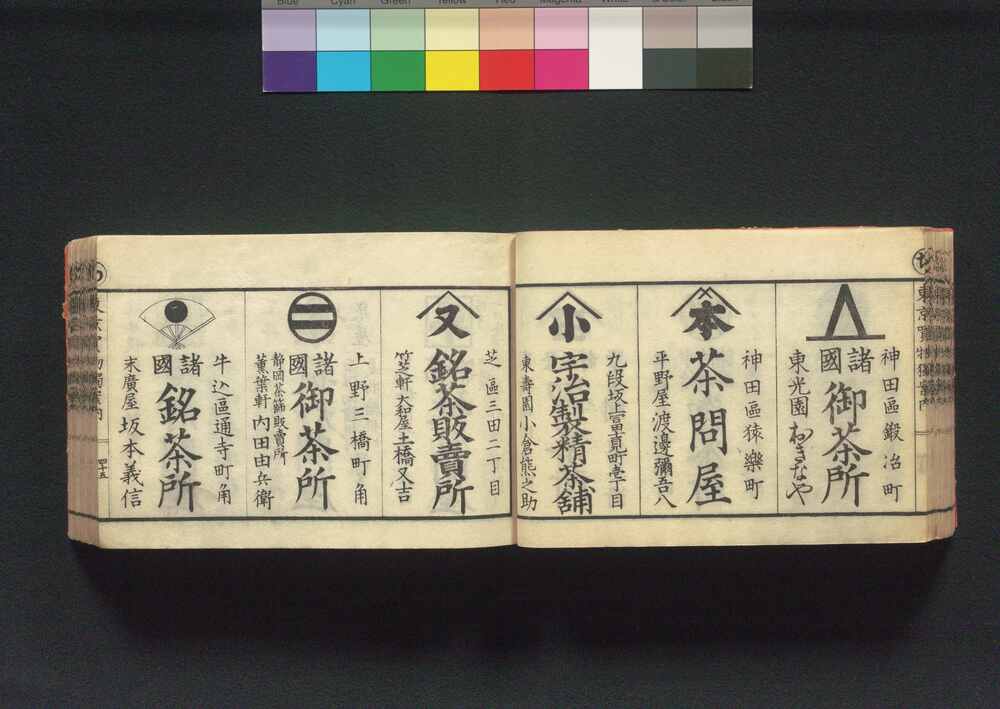 Blue Cyan Green Yellow Red Magenta White 3/Color Black
ち
神田區鍛冶町
諸國
御茶所
東光園 おきなや
神田區猿樂町
本
茶問屋
平野屋 渡邊彌吾八
九段坂上富見町壱丁目
小
宇治製精茶舗
東壽園 小倉熊之助
芝區三田二丁目
又
銘茶販賣所
笠芝軒 大和屋土橋又吉
上野三橋町角
諸國
御茶所
静岡茶舖販賣所
薫葉軒 内田由兵衛
牛込區通寺町角
諸國
銘茶所
末廣屋 坂本義信
四十五